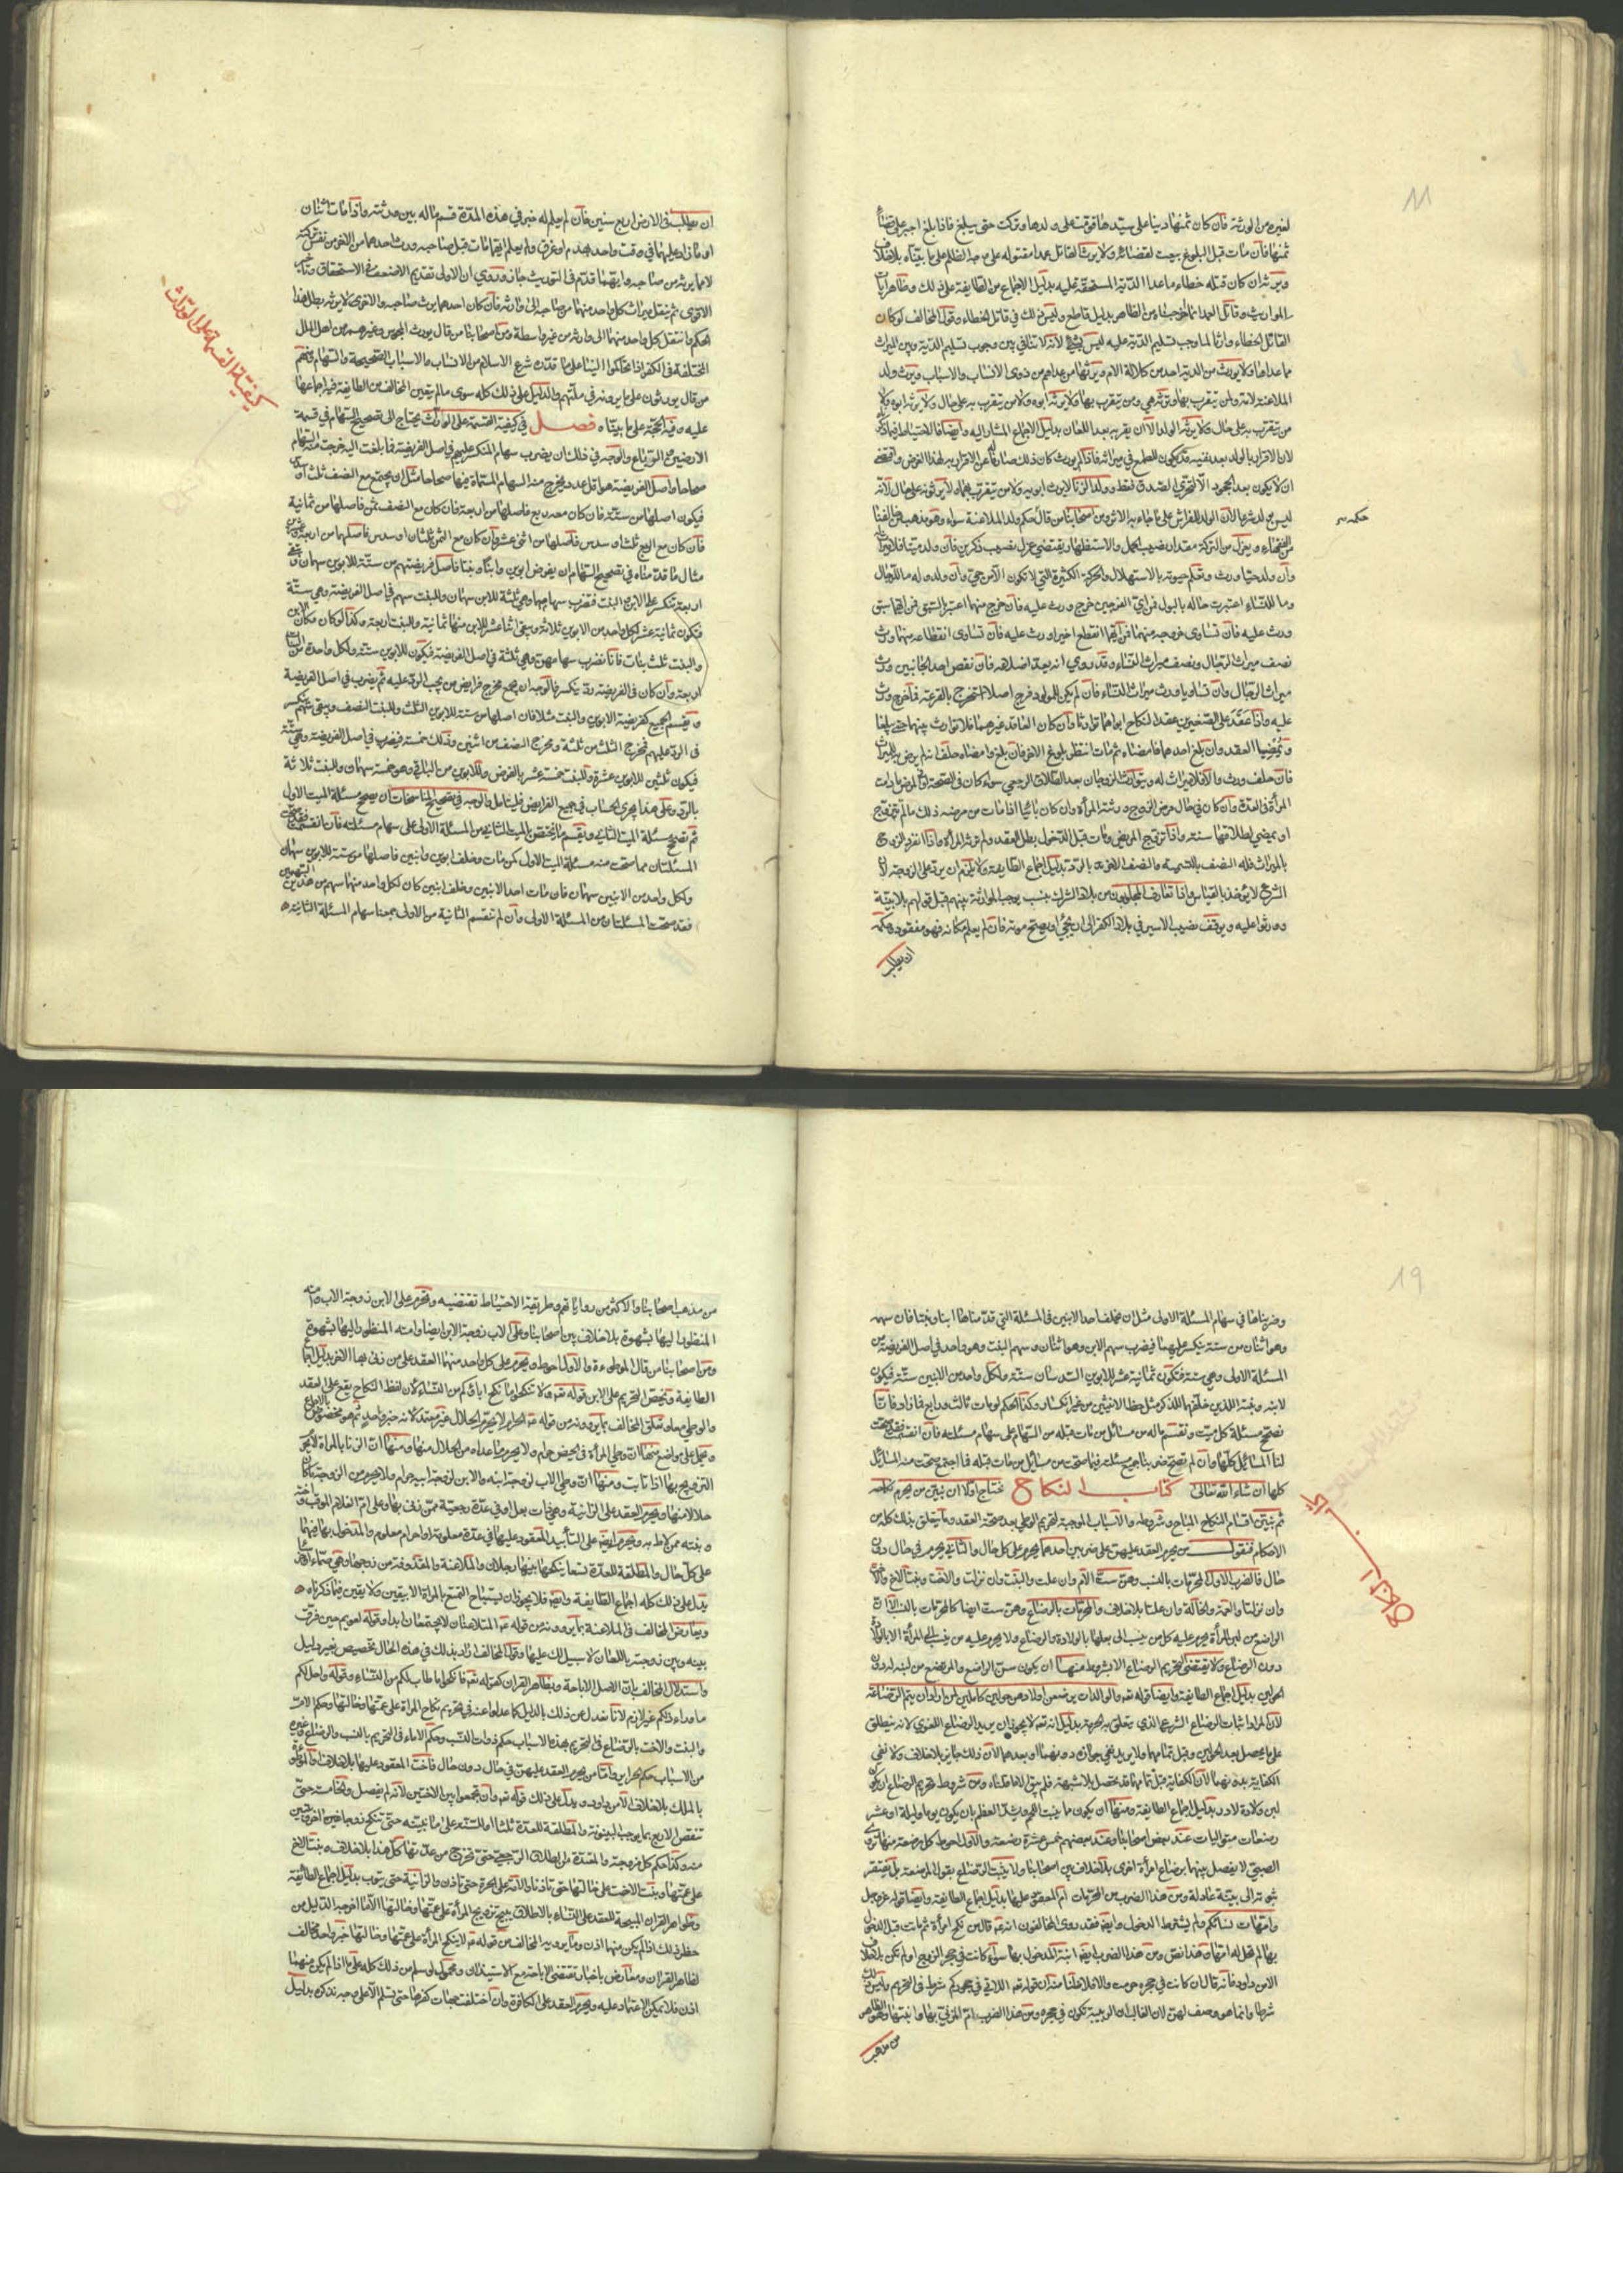 لغيره من الورثة فان كان ثمنها دينا على سيدها قومت على ولدها وتركت حتى يبلغ فاذا بلغ اجبر على قضاء
ثمنها فان مات قبل البلوغ بيعت لقضائه ولا يرث القاتل عمدا مقتوله على وجه الظلم على ما بيناه بلا خلاف
ويرثه ان كان قتله خطاء ما عدا الدية المستحقة عليه بدليل الاجماع من الطايفة على ذلك وظاهر ايات
المواريث وقاتل العمد انما اخرجناه من الظاهر بدليل قاطع وليس ذلك في قاتل الخطاء وقول المخالف لو كان
القاتل الخطاء وارثا لما وجب تسليم الدية عليه ليس بشيء لانه لا تنافي بين وجوب تسليم الدية وبين الميراث
مما عداها ولا يورث من الدية احد من كلالة الام ويرثها من عداهم من ذوى الانساب والاسباب ويرث ولد
الملاعنة امه ومن يتقرب بها وترثه هي ومن يتقرب بها ولا يرثه ابوه ولا من يتقرب به على حال ولا يرث ابوه ولا
من يتقرب به على حال ولا يرثه الولد الا ان يقر به بعد اللعان بدليل الاجماع المشار اليه وايضا فالاحتياط فيما ذكرناه
لان الاقرار بالولد بعد نفيه قد يكون للطمع في ميراثه فاذا لم يورث كان ذلك صارفا عن الاقرار به لهذا الغرض واقتضى
ان لا يكون بعد الجحود الا لتحري الصدق فقط وولد الزنا لا يرث ابويه ولا من يتقرب بهما ولا يرثونه على حال لانه
ليس بولد شرعا لان الولد للفراش على ما جاء به الاثر ومن اصحابنا من قال حكم ولد الملاعنة سواء وهو مذهب من خالفنا
حكمه
من الفقهاء ويعزل من التركة مقدار نصيب الحمل والاستظهار يقتضي عزل نصيب ذكرين فان ولد ميتا فلا ميراث له
وان ولد حيا ورث وتعلم حيوته بالاستهلال والحركة الكثيرة التي لا تكون الا من حي وان ولد وله ما للرجال
وما للنساء اعتبرت حاله بالبول فمن اي الفرجين خرج ورث عليه فان خرج منهما اعتبر السبق فمن ايهما سبق
ورث عليه فان تساوى خروجه منهما فمن ايهما انقطع اخيرا ورث عليه فان تساوى انقطاعه منهما ورث
نصف ميراث الرجال ونصف ميراث النساء وقد روي انه يعد اضلاعه فان نقص احد الجانبين ورث
ميراث الرجال وان تساويا ورث ميراث النساء فان لم يكن للمولود فرج اصلا استخرج بالقرعة فما خرج ورث
عليه واذا عقد على الصغيرين عقد النكاح ابواهما توارثا وان كان العاقد غيرهما فلا توارث بينهما حتى يبلغا
ويمضيا العقد وان بلغ احدهما فامضاه ثم مات انتظر بلوغ الاخر فان بلغ وامضاه حلف انه لم يرض به للميراث
فان حلف ورث والا فلا ميراث له ويتوارث الزوجان بعد الطلاق الرجعي سواء كان في الصحة او المرض ما دامت
المراة في العدة وان كان في حال مرض الزوج ورثته المراة وان كان باينا اذا مات من مرضه ذلك ما لم تتزوج
او يمضي لطلاقها سنة واذا تزوج المريض ومات قبل الدخول بطل العقد ولم ترثه المراة واذا انفرد الزوج
بالميراث فله النصف بالتسمية والنصف الاخر بالرد بدليل اجماع الطايفة ولا يلزم ان يرد على الزوجة لان
الشرع لا يؤخذ بالقياس واذا تعارف المجلوبون من بلاد الشرك بنسب يوجب الموارثة بينهم قبل قولهم بلا بينة
وورثوا عليه ويوقف نصيب الاسير في بلاد الكفر الى ان يجيء او يصح موته فان لم يعلم مكانه فهو مفقود وحكمه
ان يطلب
ان يطلب في الارض اربع سنين فان لم يعلم له خبر في هذه المدة قسم ماله بين ورثته واذا مات اثنان
او ما زاد عليهما في وقت واحد بهدم او غرق ولم يعلم ايهما مات قبل صاحبه ورث احدهما من الاخر من نفس تركته
لا مما يرثه من صاحبه وايهما قدم في التوريث جاز وروي ان الاولى تقديم الاضعف في الاستحقاق وتاخير
الاقوى ثم ينقل ميراث كل واحد منهما من صاحبه الى وارثه فان كان احدهما يرث صاحبه والاخر لا يرثه بطل هذا
الحكم وانتقل مال كل واحد منهما الى وارثه من غير واسطة ومن اصحابنا من قال يورث المجوس وغيرهم من اهل الملل
المختلفة في الكفر اذا تحاكموا الينا على ما قدره شرع الاسلام من الانساب والاسباب الصحيحة والسهام ومنهم
من قال يورثون على ما يرونه في ملتهم والدليل على ذلك كله سوى ما لم يتعين المخالف من الطايفة فيه اجماعها
عليه وفيه الحجة على ما بيناه فصل في كيفية القسمة على الوراث يحتاج الى تصحيح السهام في قسمة
الارضين والرباع والوجه في ذلك ان يضرب سهام المنكسر عليهم في اصل الفريضة فما بلغت اليه خرجت منه السهام
صحاحا واصل الفريضة هو اقل عدد يخرج منه السهام المسماة فيها صحاحا مثل ان يجتمع مع النصف ثلث او سدس
فيكون اصلها من ستة فان كان معه ربع فاصلها من اربعة فان كان مع النصف ثمن فاصلها من ثمانية
فان كان مع الربع ثلث او سدس فاصلها من اثنى عشر وان كان مع الثمن ثلثان او سدس فاصلها من اربعة وعشرين
مثال ما قدمناه في تصحيح السهام ان يفرض ابوين وابنا وبنتا فاصل فريضتهم من ستة للابوين سهمان وتبقى
اربعة تنكسر على الابن والبنت فتضرب سهامهما وهي ثلثة للابن سهمان وللبنت سهم في اصل الفريضة وهي ستة
فتكون ثمانية عشر لكل واحد من الابوين ثلاثة ويبقى اثنا عشر للابن منها ثمانية وللبنت اربعة وكذا لو كان مكان الابن
والبنت ثلث بنات فانا نضرب سهامهن وهي ثلثة في اصل الفريضة فيكون للابوين ستة ولكل واحدة من البنات
اربعة وان كان في الفريضة رد ينكسر فالوجه ان يجمع مخرج فرايض من يجب الرد عليه ثم يضرب في اصل الفريضة
ويقسم الجميع كفريضة الابوين والبنت مثلا فان اصلها من ستة للابوين الثلث وللبنت النصف ويبقى سهم ينكسر
في الرد عليهم فمخرج الثلث من ثلثة ومخرج النصف من اثنين وذلك خمسة فيضرب في اصل الفريضة وهي ستة
فيكون ثلثين للابوين عشرة وللبنت خمسة عشر بالفرض وللابوين من الباقي وهو خمسة سهمان وللبنت ثلاثة
بالرد وعلى هذا يجري الحساب في جميع الفرايض فليتامل والوجه في تصحيح المناسخات ان يصح مسئلة الميت الاول
ثم تصح مسئلة الميت الثاني ويقسم ما يختص بالميت الثاني من المسئلة الاولى على سهام مسئلته فان انقسمت فقد صحت
المسئلتان مما صحت منه مسئلة الميت الاول كمن مات وخلف ابوين وابنين فاصلها من ستة للابوين سهمان
ولكل واحد من الابنين سهمان فان مات احد الابنين وخلف ابنين كان لكل واحد منهما سهم من هذين السهمين
فقد صحت المسئلتان من المسئلة الاولى وان لم تنقسم الثانية من الاولى جمعنا سهام المسئلة الثانية
كيفية القسمة على الوراث
وضربناها في سهام المسئلة الاولى مثل ان يخلف احد الابنين في المسئلة التي قدمناها ابنا وبنتا فان سهمه
وهو اثنان من ستة ينكسر عليهما فيضرب سهم الابن وهو اثنان وسهم البنت وهو واحد في اصل الفريضة من
المسئلة الاولى وهي ستة فتكون ثمانية عشر للابوين السدسان ستة ولكل واحد من الابنين ستة فيكون
لابنه وبنته اللذين خلفهما للذكر مثل حظ الانثيين من غير انكسار وكذا الحكم لو مات ثالث ورابع فما زاد فانا
نصحح مسئلة كل ميت ونقسم ماله من مسائل من مات قبله من السهام على سهام مسئلته فان انقسمت فقد صحت
لنا المسائل كلها وان لم تصح ضربنا جميع مسئلته فيما صحت منه مسايل من مات قبله فما اجتمع صحت منه المسائل
كلها ان شاء الله تعالى كتاب النكاح نحتاج اولا ان نبين من يحرم نكاحه
ثم نبين اقسام النكاح المباح وشروطه والاسباب الموجبة لتحريم الوطي بعد صحة العقد وما يتعلق بذلك كله من
الاحكام فنقول من يحرم العقد عليهن على ضربين احدهما يحرم على كل حال والثاني يحرم في حال دون
حال فالضرب الاول المحرمات بالنسب وهن ست الام وان علت والبنت وان نزلت والاخت وبنت الاخ والاخت
وان نزلتا والعمة والخالة وان علتا بلا خلاف والمحرمات بالرضاع وهن ست ايضا كالمحرمات بالنسب الا ان
الراضع من لبن المراة يحرم عليه كل من ينسب الى بعلها بالولادة والرضاع ولا يحرم عليه من ينسب الى المراة الا بالولادة
دون الرضاع ولا يقتضى التحريم الرضاع الا بشروط منها ان يكون سن الراضع والمرتضع من لبنه دون
الحولين بدليل اجماع الطايفة وايضا قوله تعه والوالدات يرضعن اولادهن حولين كاملين لمن اراد ان يتم الرضاعة
لان المراد اثبات الرضاع الشرعي الذي يتعلق به الحرمة بدليل انه تعه لا يجوز ان يريد الرضاع اللغوي لانه ينطلق
على ما يحصل بعد الحولين وقبل تمامهما ولا يريد نفي جوازه دونهما او بعدهما لان ذلك جايز بلا خلاف ولا نفي
الكفاية بدونهما لان الكفاية قبل تمامهما قد تحصل بلا شبهة فلم يبق الا ما قلناه ومن شروط تحريم الرضاع ان يكون
لبن ولادة لا در بدليل اجماع الطايفة ومنها ان يكون ما ينبت اللحم ويشد العظم بان يكون يوما وليلة او عشر
رضعات متواليات عند بعض اصحابنا وعند بعضهم خمس عشرة رضعة والاول احوط كل رضعة منها تروي
الصبي لا يفصل بينها برضاع امراة اخرى بلا خلاف بين اصحابنا ولا يثبت الرضاع بقول المرضعة بل يفتقر
ثبوته الى بينة عادلة ومن هذا الضرب من المحرمات ام المعقود عليها بدليل اجماع الطايفة وايضا قوله عز وجل
وامهات نسائكم ولم يشترط الدخول وايضا فقد روى المخالفون انه عه قال من نكح امراة ثم ماتت قبل الدخول
بها لم تحل له امها وهذا نص ومن هذا الضرب ايضا ابنة المدخول بها سواء كانت في حجر الزوج او لم تكن بلا خلاف
الا من داود فانه قال ان كانت في حجره حرمت والا فلا ظنا منه ان قوله تعه اللاتي في حجوركم شرط في التحريم وليس ذلك
شرطا وانما هو وصف لهن لان الغالب ان الربيبة تكون في حجره ومن هذا الضرب ام المزني بها وابنتها وهو الظاهر
من مذهب
من مذهب اصحابنا والاكثر من رواياتهم وطريقة الاحتياط تقتضيه وتحرم على الابن زوجة الاب وامته
المنظور اليها بشهوة بلا خلاف بين اصحابنا وعلى الاب زوجة الابن ايضا وامته المنظور اليها بشهوة
ومن اصحابنا من قال الموطوءة والاول احوط ويحرم على كل واحد منهما العقد على من زنى بها الاخر بدليل اجماع
الطايفة ويخص التحريم على الابن قوله تعه ولا تنكحوا ما نكح اباؤكم من النساء لان لفظ النكاح يقع على العقد
والوطي معا وتعلق المخالف بما يروونه من قوله عه الحرام لا يحرم الحلال غير معتمد لانه خبر واحد ثم هو مخصوص بالاجماع
ويحمل على مواضع منها ان وطي المراة في الحيض حرام ولا يحرم ما عداه من الحلال منها ومنها ان الزنا بالمراة لا يحرم
التزويج بها اذا تابت ومنها ان وطي الاب لزوجة ابنه والابن لزوجة ابيه حرام ولا يحرم من الزوجة ما كان
حلالا منها ويحرم العقد على الزانية وهي ذات بعل او في عدة رجعية ممن زنى بها وعلى ام الغلام الموقب واخته
وبنته ممن لاط به ويحرم ايضا على التأبيد المعقود عليها في عدة معلومة او احرام معلوم والمدخول بها فيهما
على كل حال والمطلقة للعدة تسعا ينكحها بينها رجلان والملاعنة والمقذوفة من زوجها وهي صماء او خرساء
يدل على ذلك كله اجماع الطايفة وايضا فلا يجوز ان يستباح التمتع بالمراة الا بيقين ولا يقين فيما ذكرناه
ويعارض المخالف في الملاعنة بما يروونه من قوله عه المتلاعنان لا يجتمعان ابدا وقوله لعويمر حين فرق
بينه وبين زوجته باللعان لا سبيل لك عليها وقول المخالف اراد بذلك في هذه الحال تخصيص بغير دليل
واستدلال المخالف بان الاصل الاباحة وبظاهر القران كقوله تعه فانكحوا ما طاب لكم من النساء وقوله واحل لكم
ما وراء ذلكم غير لازم لانا نعدل عن ذلك بالدليل كما عدلوا عنه في تحريم نكاح المراة على عمتها وخالتها وحكم الام
والبنت والاخت بالرضاع في التحريم بهذه الاسباب حكم ذوات النسب وحكم الاماء في التحريم بالنسب والرضاع وغيره
من الاسباب حكم الحراير واما من يحرم العقد عليهن في حال دون حال فاخت المعقود عليها بلا خلاف او الموطوءة
بالملك بلا خلاف الا من داود ويدل على ذلك قوله تعه وان تجمعوا بين الاختين لانه لم يفصل والخامسة حتى
تنقص الاربع بما يوجب البينونة والمطلقة للعدة ثلثا او للسنة على ما نبينه حتى تنكح زوجا وتبين
منه وكذا حكم كل زوجة والمعتدة من الطلاق الرجعي حتى تخرج من عدتها كل هذا بلا خلاف وبنت الاخ
على عمتها وبنت الاخت على خالتها حتى تاذنا والامة على الحرة حتى تاذن والزانية حتى تتوب بدليل اجماع الطائفة
وظواهر القران المبيحة للعقد على النساء بالاطلاق يبيح تزويج المراة على عمتها وخالتها الا ما اخرجه الدليل من
حظر ذلك اذا لم يكن منهما اذن وما يرويه المخالف من قوله عه لا ينكح المراة على عمتها وخالتها خبر واحد مخالف
لظاهر القران ومعارض باخبار تقتضى الاباحة مع الاستيذان ومحمول لو سلم من ذلك كله على ما اذا لم يكن منهما
اذن فلا يمكن الاعتماد عليه ويحرم العقد على الكافرة وان اختلفت جهات كفرها حتى تسلم الا على وجه نذكره بدليل